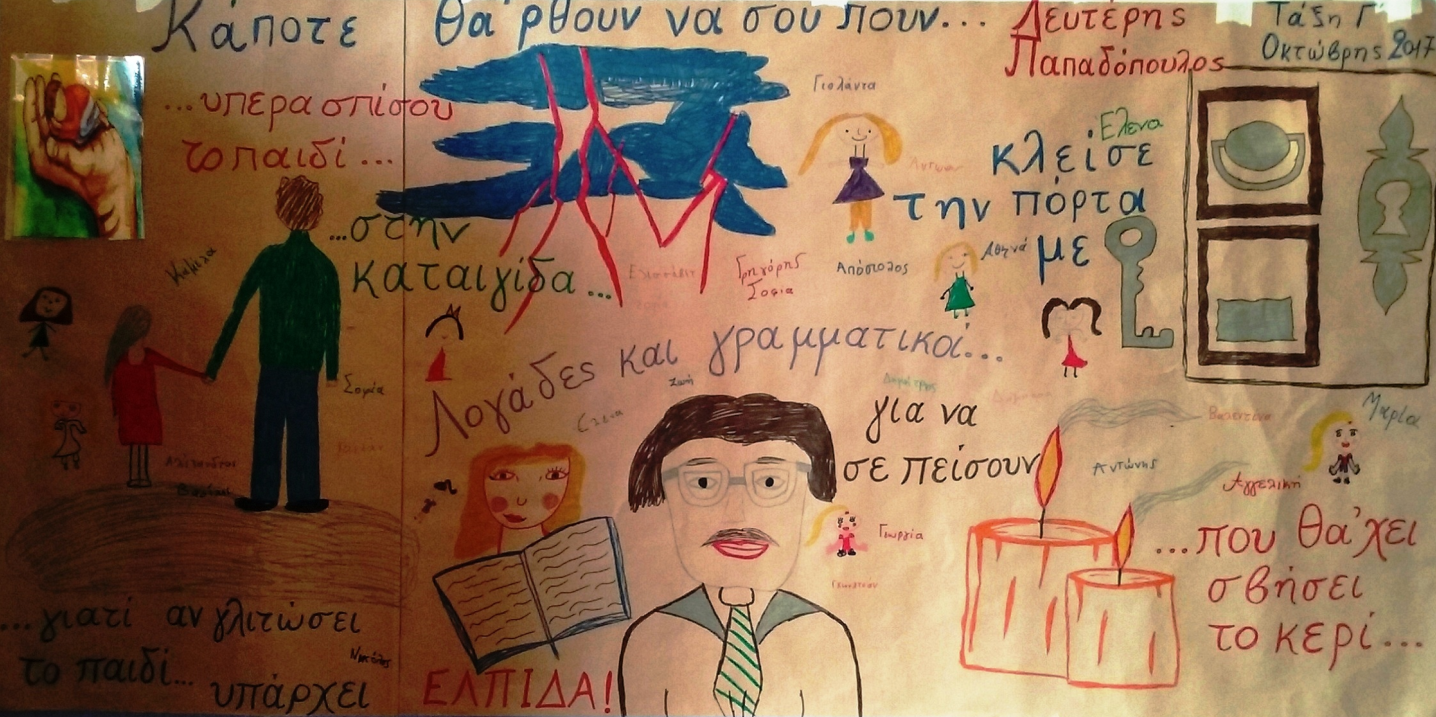 Κάποτε θα 'ρθουν να σου πουν...
Λευτέρης
Παπαδόπουλος
Τάξη Γ'
Οκτώβρης 2017
...υπερασπίσου
το παιδί...
...στην
καταιγίδα...
Γιολάντα
Έλενα
κλείσε
την πόρτα
με
Αθηνά
Απόστολος
Γρηγόρης
Σοφία
Λογάδες και γραμματικοί...
Ζωή
για να
σε πείσουν
Αντώνης
Αγγελική
Μαρία
Γεωργία
...που θα 'χει
σβήσει
το κερί...
...γιατί αν γλιτώσει
το παιδί...
υπάρχει
ΕΛΠΙΔΑ!